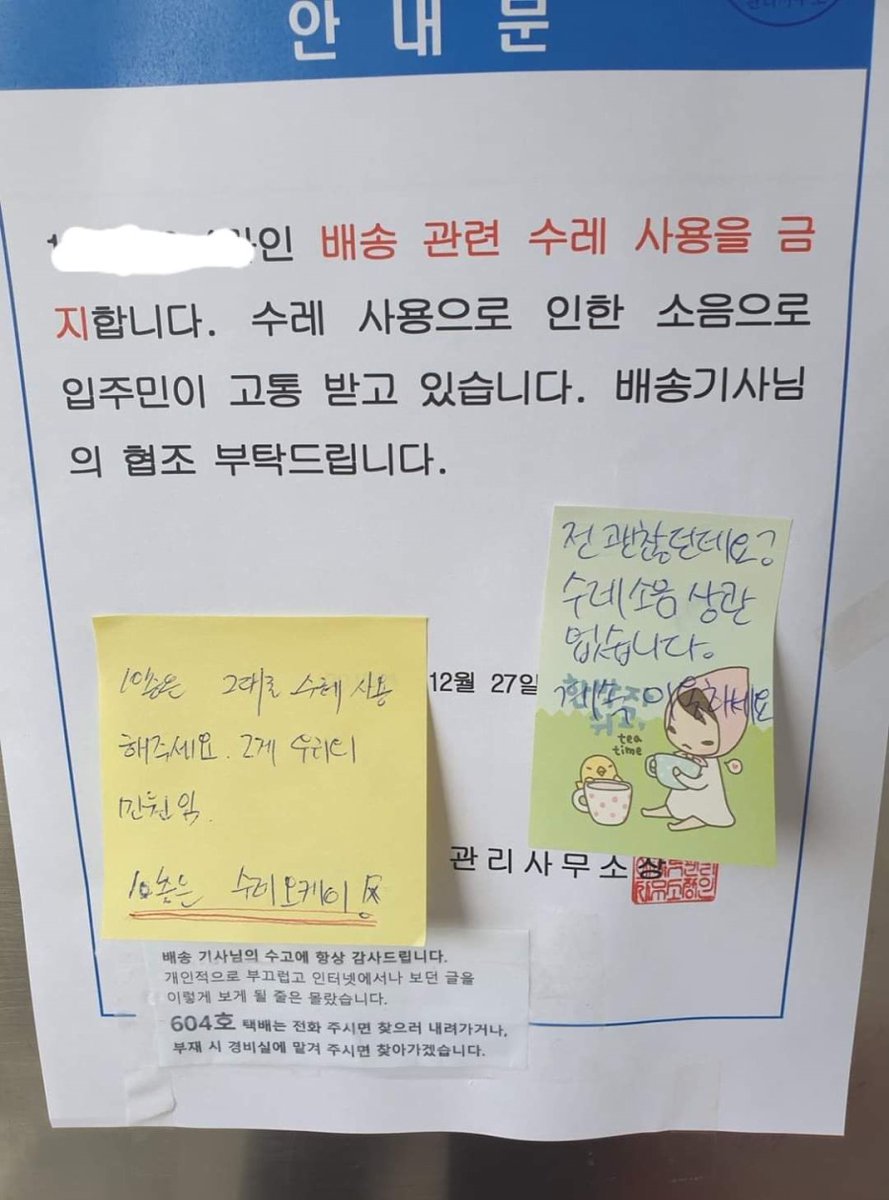 안 내 문
인 배송 관련 수레 사용을 금
지합니다. 수레 사용으로 인한 소음으로
입주민이 고통 받고 있습니다. 배송기사님
의 협조 부탁드립니다.
전 괜찮던데요?
수레소음 상관
없습니다.
계속 이용하세요
tea
time
10층은 그대로 수레 사용
해주세요. 그게 우리의
민원임.
10층은 수레 오케이
12월 27일
관리사무소장
배송 기사님의 수고에 항상 감사드립니다.
개인적으로 부끄럽고 인터넷에서나 보던 글을
이렇게 보게 될 줄은 몰랐습니다.
604호 택배는 전화 주시면 찾으러 내려가거나,
부재 시 경비실에 맡겨 주시면 찾아가겠습니다.